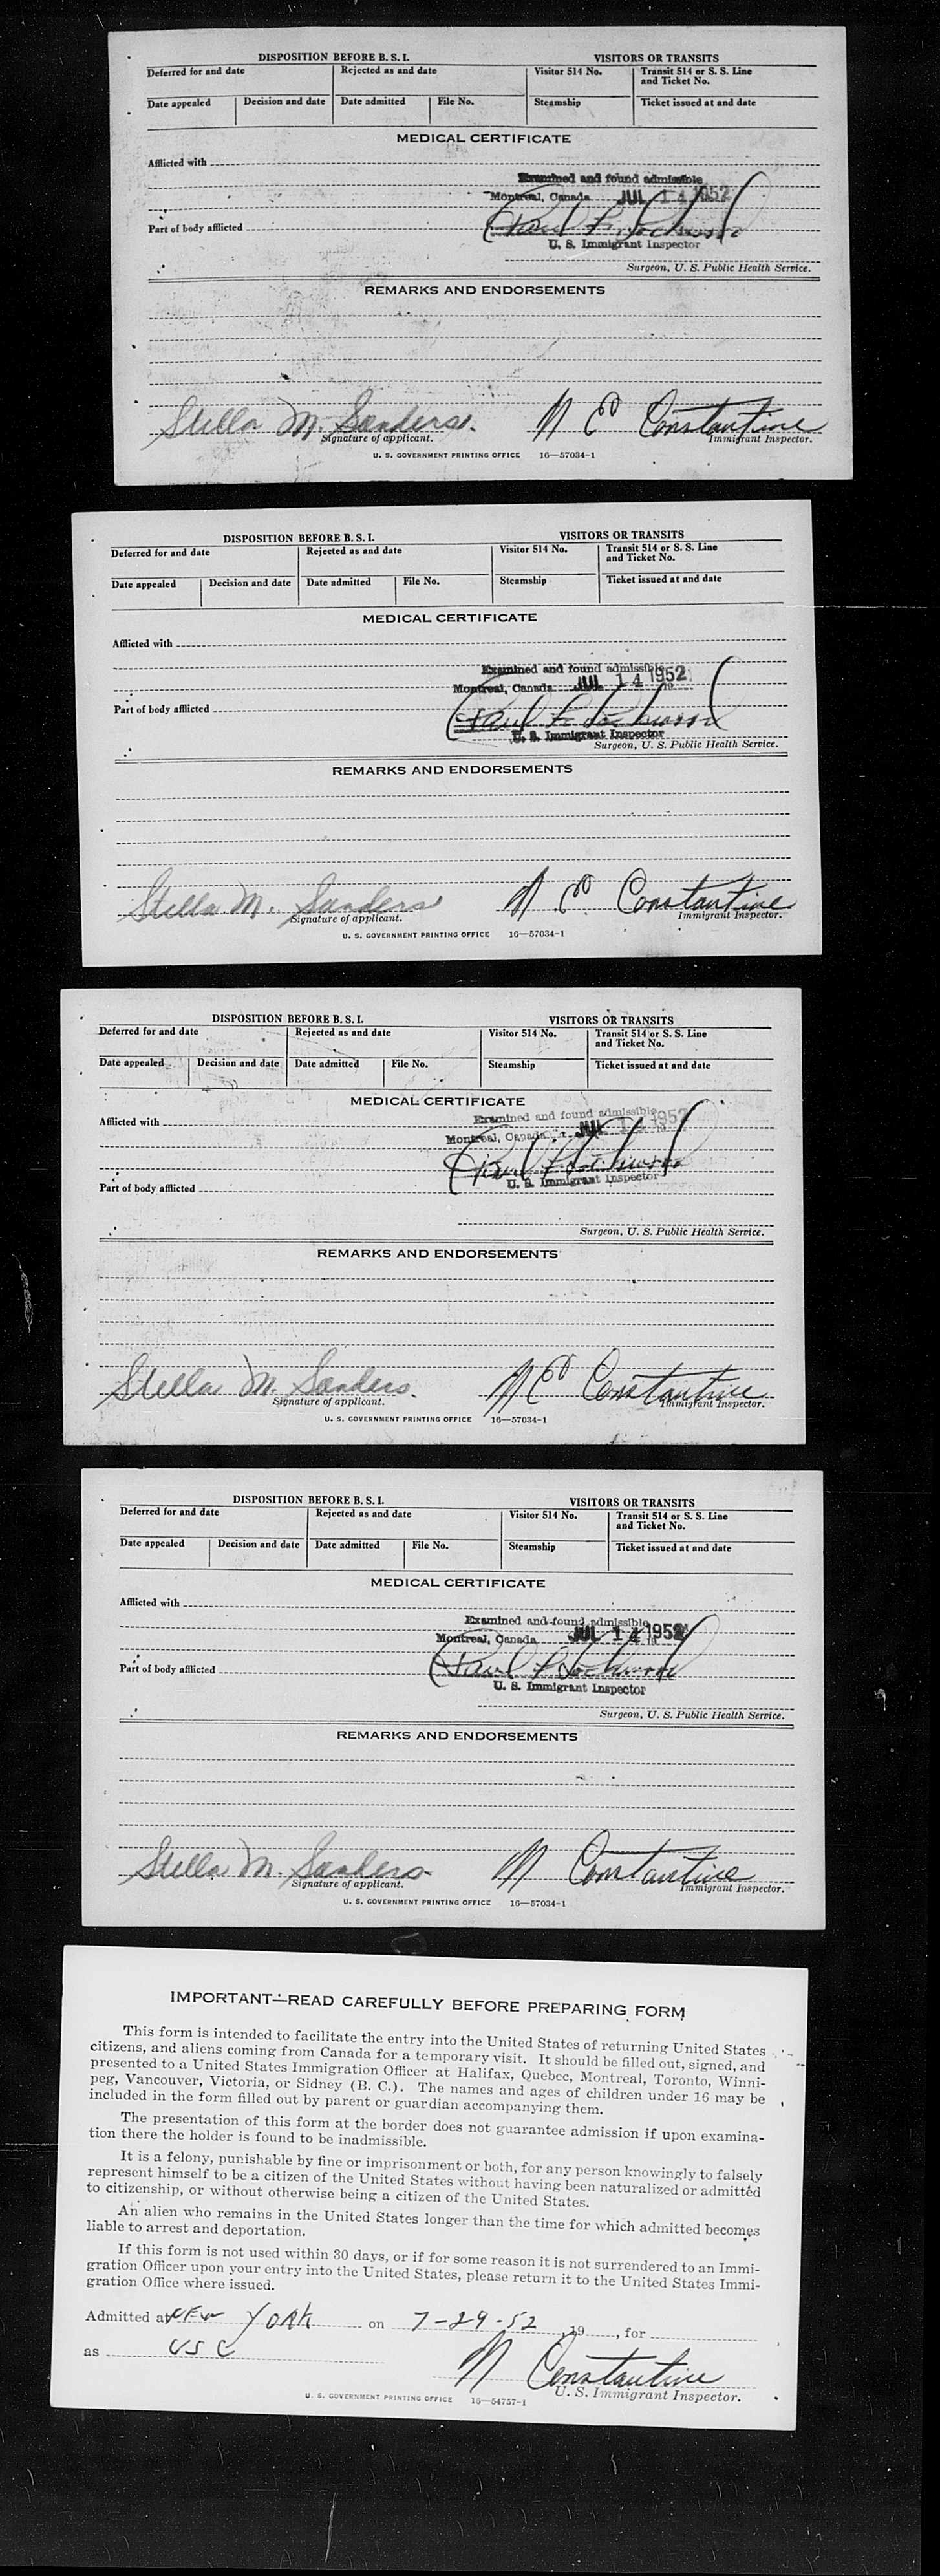 DISPOSITION BEFORE B. S. I. VISITORS OR TRANSITS
Deferred for and date Rejected as and date Visitor 514 No. Transit 514 or S. S. Line and Ticket No.
Date appealed Decision and date Date admitted File No. Steamship Ticket issued at and date
MEDICAL CERTIFICATE
Afflicted with
Examined and found admissible
Montreal, Canada JUL 14 1952
Part of body afflicted Paul
U. S. Immigrant Inspector
Surgeon, U. S. Public Health Service.
REMARKS AND ENDORSEMENTS
Stella M. Sanders. N C Constantine
Signature of applicant. Immigrant Inspector.
U. S. GOVERNMENT PRINTING OFFICE 16—57034-1
DISPOSITION BEFORE B. S. I. VISITORS OR TRANSITS
Deferred for and date Rejected as and date Visitor 514 No. Transit 514 or S. S. Line and Ticket No.
Date appealed Decision and date Date admitted File No. Steamship Ticket issued at and date
MEDICAL CERTIFICATE
Afflicted with
Examined and found admissible
Montreal, Canada JUL 14 1952
Part of body afflicted Paul
U. S. Immigrant Inspector
Surgeon, U. S. Public Health Service.
REMARKS AND ENDORSEMENTS
Stella M. Sanders N C Constantine
Signature of applicant. Immigrant Inspector.
U. S. GOVERNMENT PRINTING OFFICE 16—57034-1
DISPOSITION BEFORE B. S. I. VISITORS OR TRANSITS
Deferred for and date Rejected as and date Visitor 514 No. Transit 514 or S. S. Line and Ticket No.
Date appealed Decision and date Date admitted File No. Steamship Ticket issued at and date
MEDICAL CERTIFICATE
Afflicted with
Examined and found admissible
Montreal, Canada JUL 14 1952
Paul
U. S. Immigrant Inspector
Part of body afflicted
Surgeon, U. S. Public Health Service.
REMARKS AND ENDORSEMENTS
Stella M. Sanders. N C Constantine
Signature of applicant. Immigrant Inspector.
U. S. GOVERNMENT PRINTING OFFICE 16—57034-1
DISPOSITION BEFORE B. S. I. VISITORS OR TRANSITS
Deferred for and date Rejected as and date Visitor 514 No. Transit 514 or S. S. Line and Ticket No.
Date appealed Decision and date Date admitted File No. Steamship Ticket issued at and date
MEDICAL CERTIFICATE
Afflicted with
Examined and found admissible
Montreal, Canada JUL 14 1952
Part of body afflicted Paul
U. S. Immigrant Inspector
Surgeon, U. S. Public Health Service.
REMARKS AND ENDORSEMENTS
Stella M. Sanders N Constantine
Signature of applicant. Immigrant Inspector.
U. S. GOVERNMENT PRINTING OFFICE 16—57034-1
IMPORTANT—READ CAREFULLY BEFORE PREPARING FORM
This form is intended to facilitate the entry into the United States of returning United States
citizens, and aliens coming from Canada for a temporary visit. It should be filled out, signed, and
presented to a United States Immigration Officer at Halifax, Quebec, Montreal, Toronto, Winni-
peg, Vancouver, Victoria, or Sidney (B. C.). The names and ages of children under 16 may be
included in the form filled out by parent or guardian accompanying them.
The presentation of this form at the border does not guarantee admission if upon examina-
tion there the holder is found to be inadmissible.
It is a felony, punishable by fine or imprisonment or both, for any person knowingly to falsely
represent himself to be a citizen of the United States without having been naturalized or admitted
to citizenship, or without otherwise being a citizen of the United States.
An alien who remains in the United States longer than the time for which admitted becomes
liable to arrest and deportation.
If this form is not used within 30 days, or if for some reason it is not surrendered to an Immi-
gration Officer upon your entry into the United States, please return it to the United States Immi-
gration Office where issued.
Admitted at NEW YORK on 7-29-52, 19, for
as USC
N Constantine
U. S. Immigrant Inspector.
U. S. GOVERNMENT PRINTING OFFICE 16—54757-1